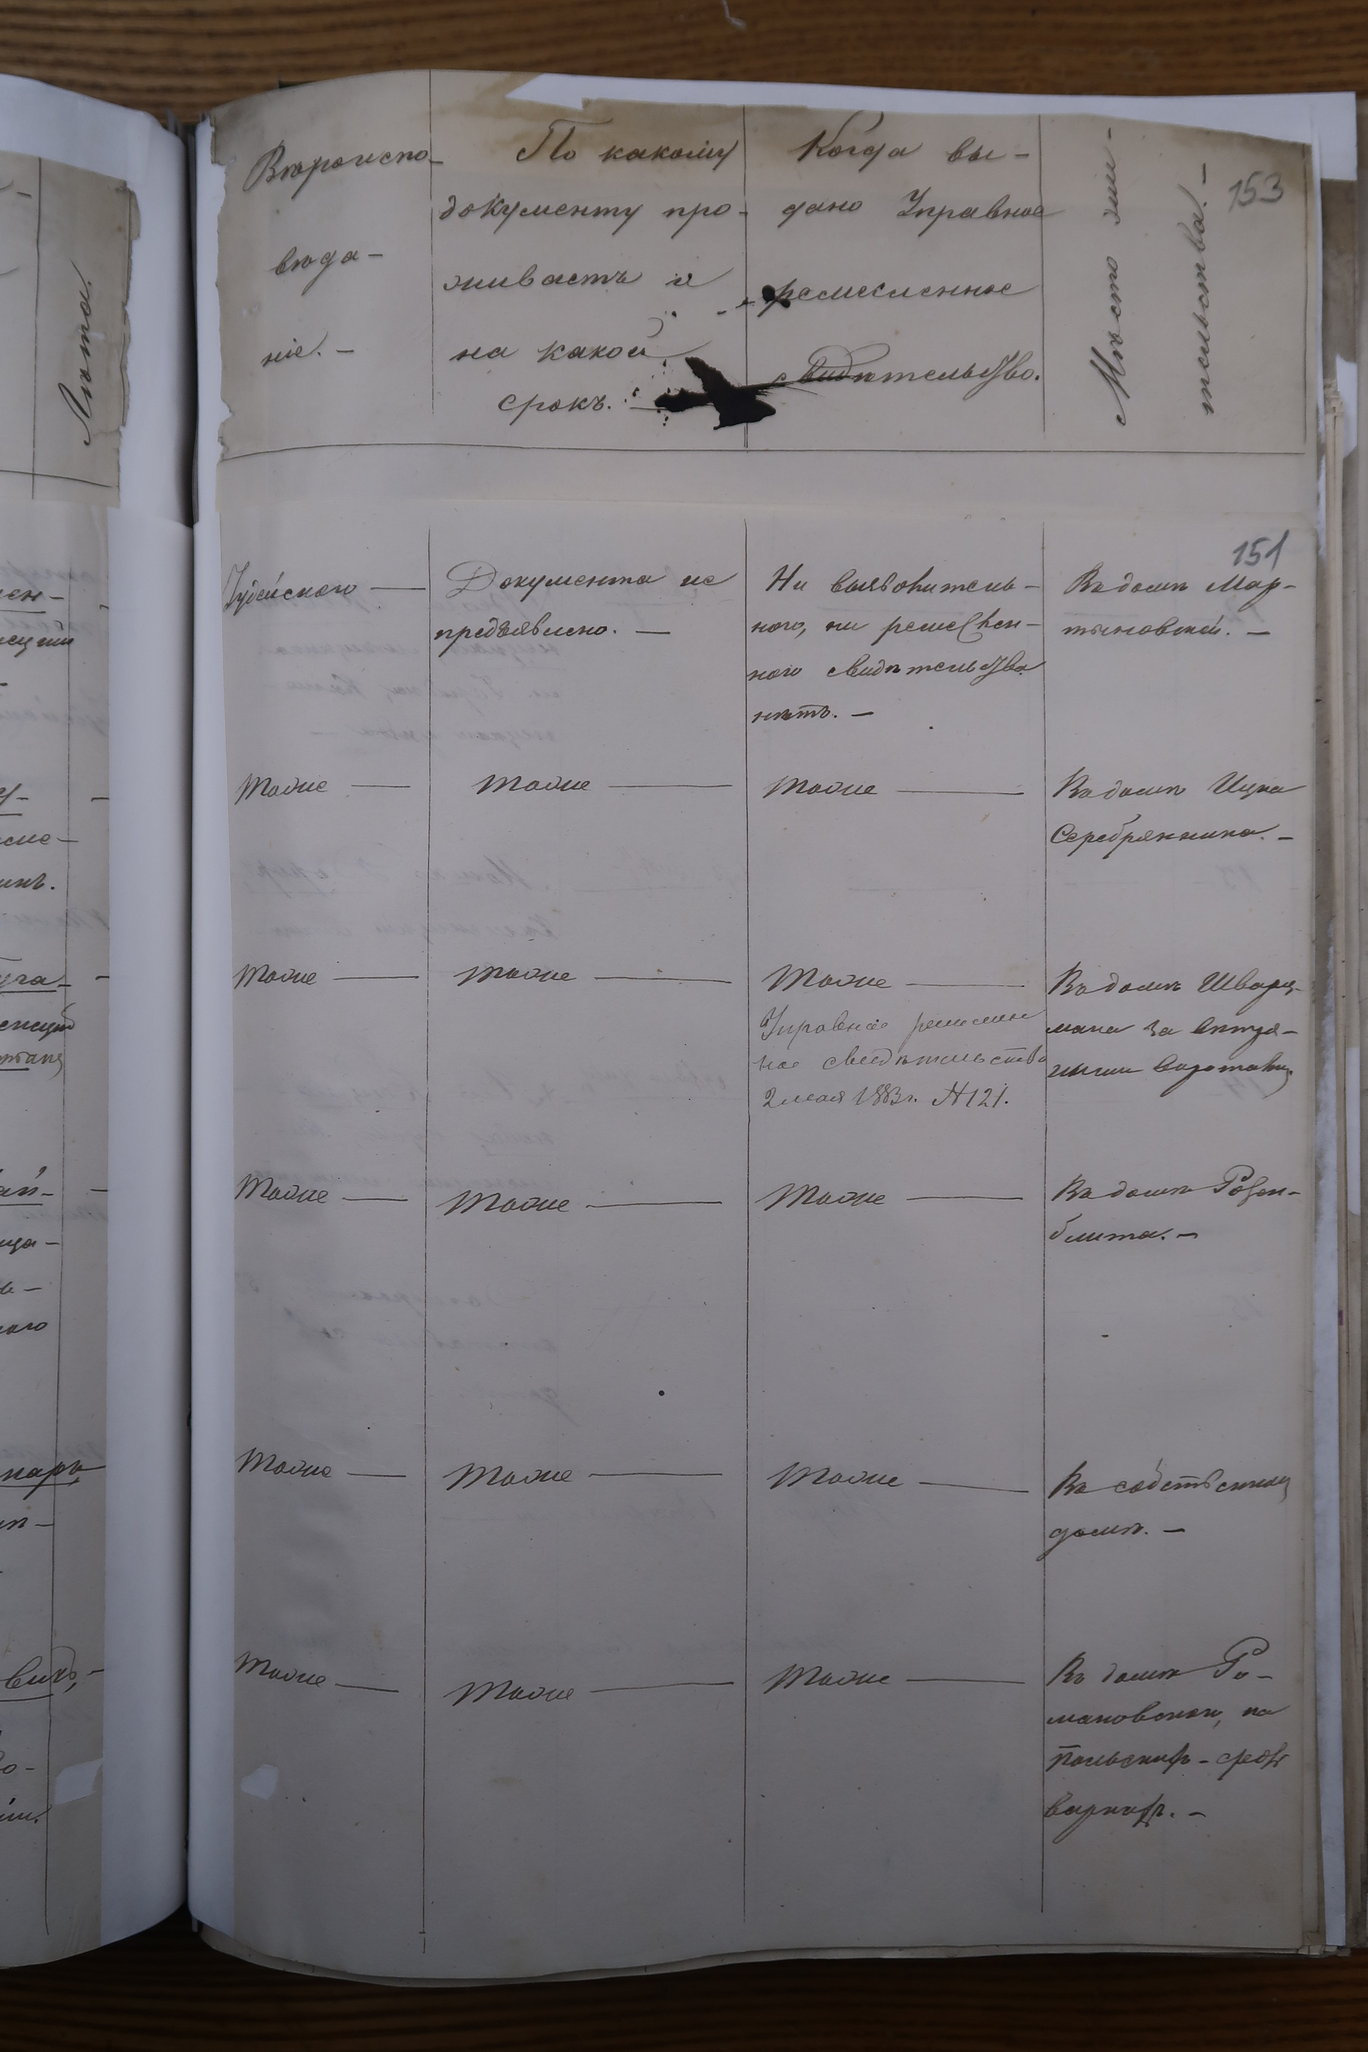 Лѣта.
153
Вѣроиспо-
вѣда-
ніе. -
По какому
документу про-
живаетъ и
на какой
срокъ. -
Когда вы-
дано Управное
ремесленное
свидѣтельство.
Мѣсто жи-
тельства. -
151
Іудейскаго —
Документа не
предъявлено. —
Ни
наго, ни ремеслен-
наго свидѣтельства
нѣтъ. —
Въ домѣ Мар-
тыновской. —
Тоже —
Тоже —
Тоже —
Въ домѣ Ицка
Серебрянника. —
Тоже —
Тоже —
Тоже —
Управное ремеслен
ное свидѣтельство
2 мая 1883 г. № 121.
Въ домѣ Шварц-
мана за
Тоже —
Тоже —
Тоже —
Въ домѣ Розен-
блита. —
Тоже —
Тоже —
Тоже —
Въ собственномъ
домѣ. —
Тоже —
Тоже —
Тоже —
Въ домѣ Ро-
мановской, на
Польскихъ-